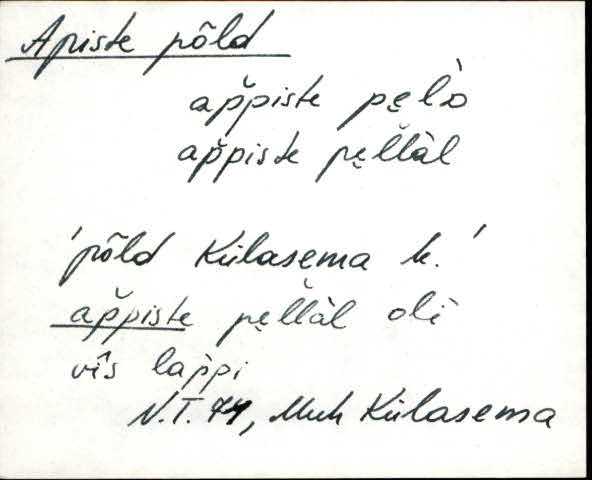 Apiste põld
ap̆piste pe̮l̀D
ap̆piste pe̮l̆làl
'põld Külasema k.'
ap̆piste pe̮l̆làl olì
vîs lap̀pi
N.T. 74, Muh Külasema